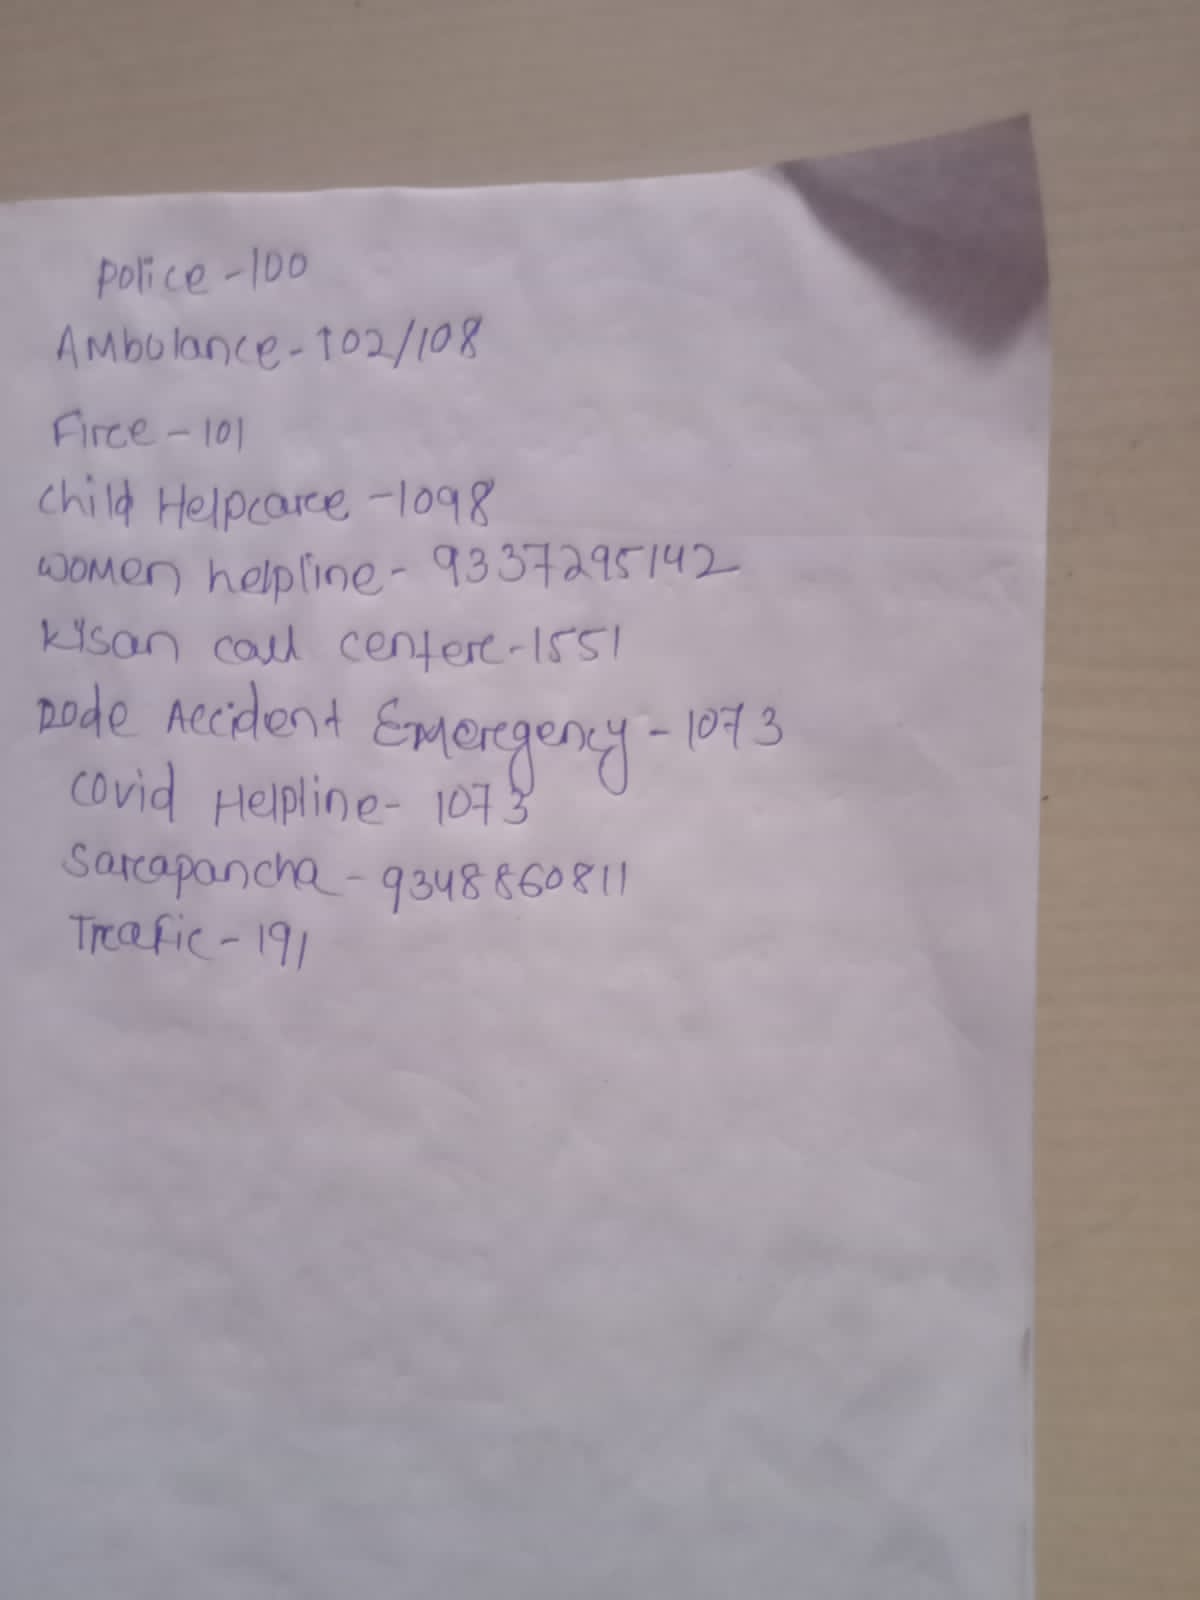 Police - 100
Ambulance - 102/108
Firce - 101
Child Helpcarce - 1098
women helpline - 9337295142
Kisan call centerc - 1551
Rode Accident Emercgency - 1073
Covid Helpline - 1073
Sarcapancha - 9348860811
Trcafic - 191